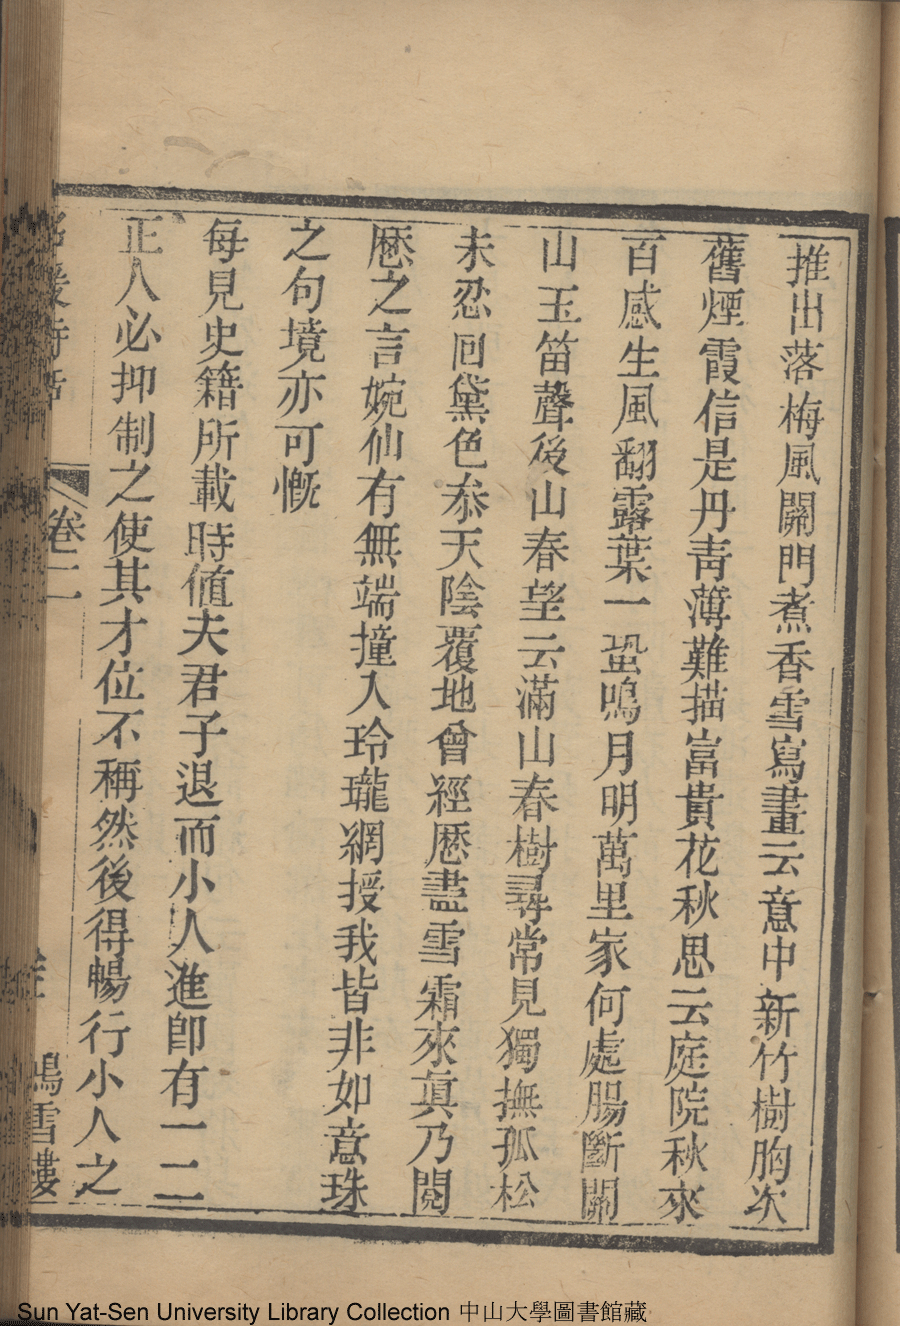 推出落梅風關門煮香雪寫畫云意中新竹樹胸次
舊煙霞信是丹青薄難描富貴花秋思云庭院秋來
百感生風翻露葉一蛩鳴月明萬里家何處腸斷關
山玉笛聲後山春望云滿山春樹尋常見獨撫孤松
未忍回黛色叅天陰覆地曾經歷盡雪霜來眞乃閱
歷之言婉仙有無端撞入玲瓏網授我皆非如意珠
之句境亦可慨
每見史籍所載時値夫君子退而小人進卽有一二
正人必抑制之使其才位不稱然後得暢行小人之
詩話
卷二
鳴雪樓
Sun Yat-Sen University Library Collection 中山大學圖書館藏